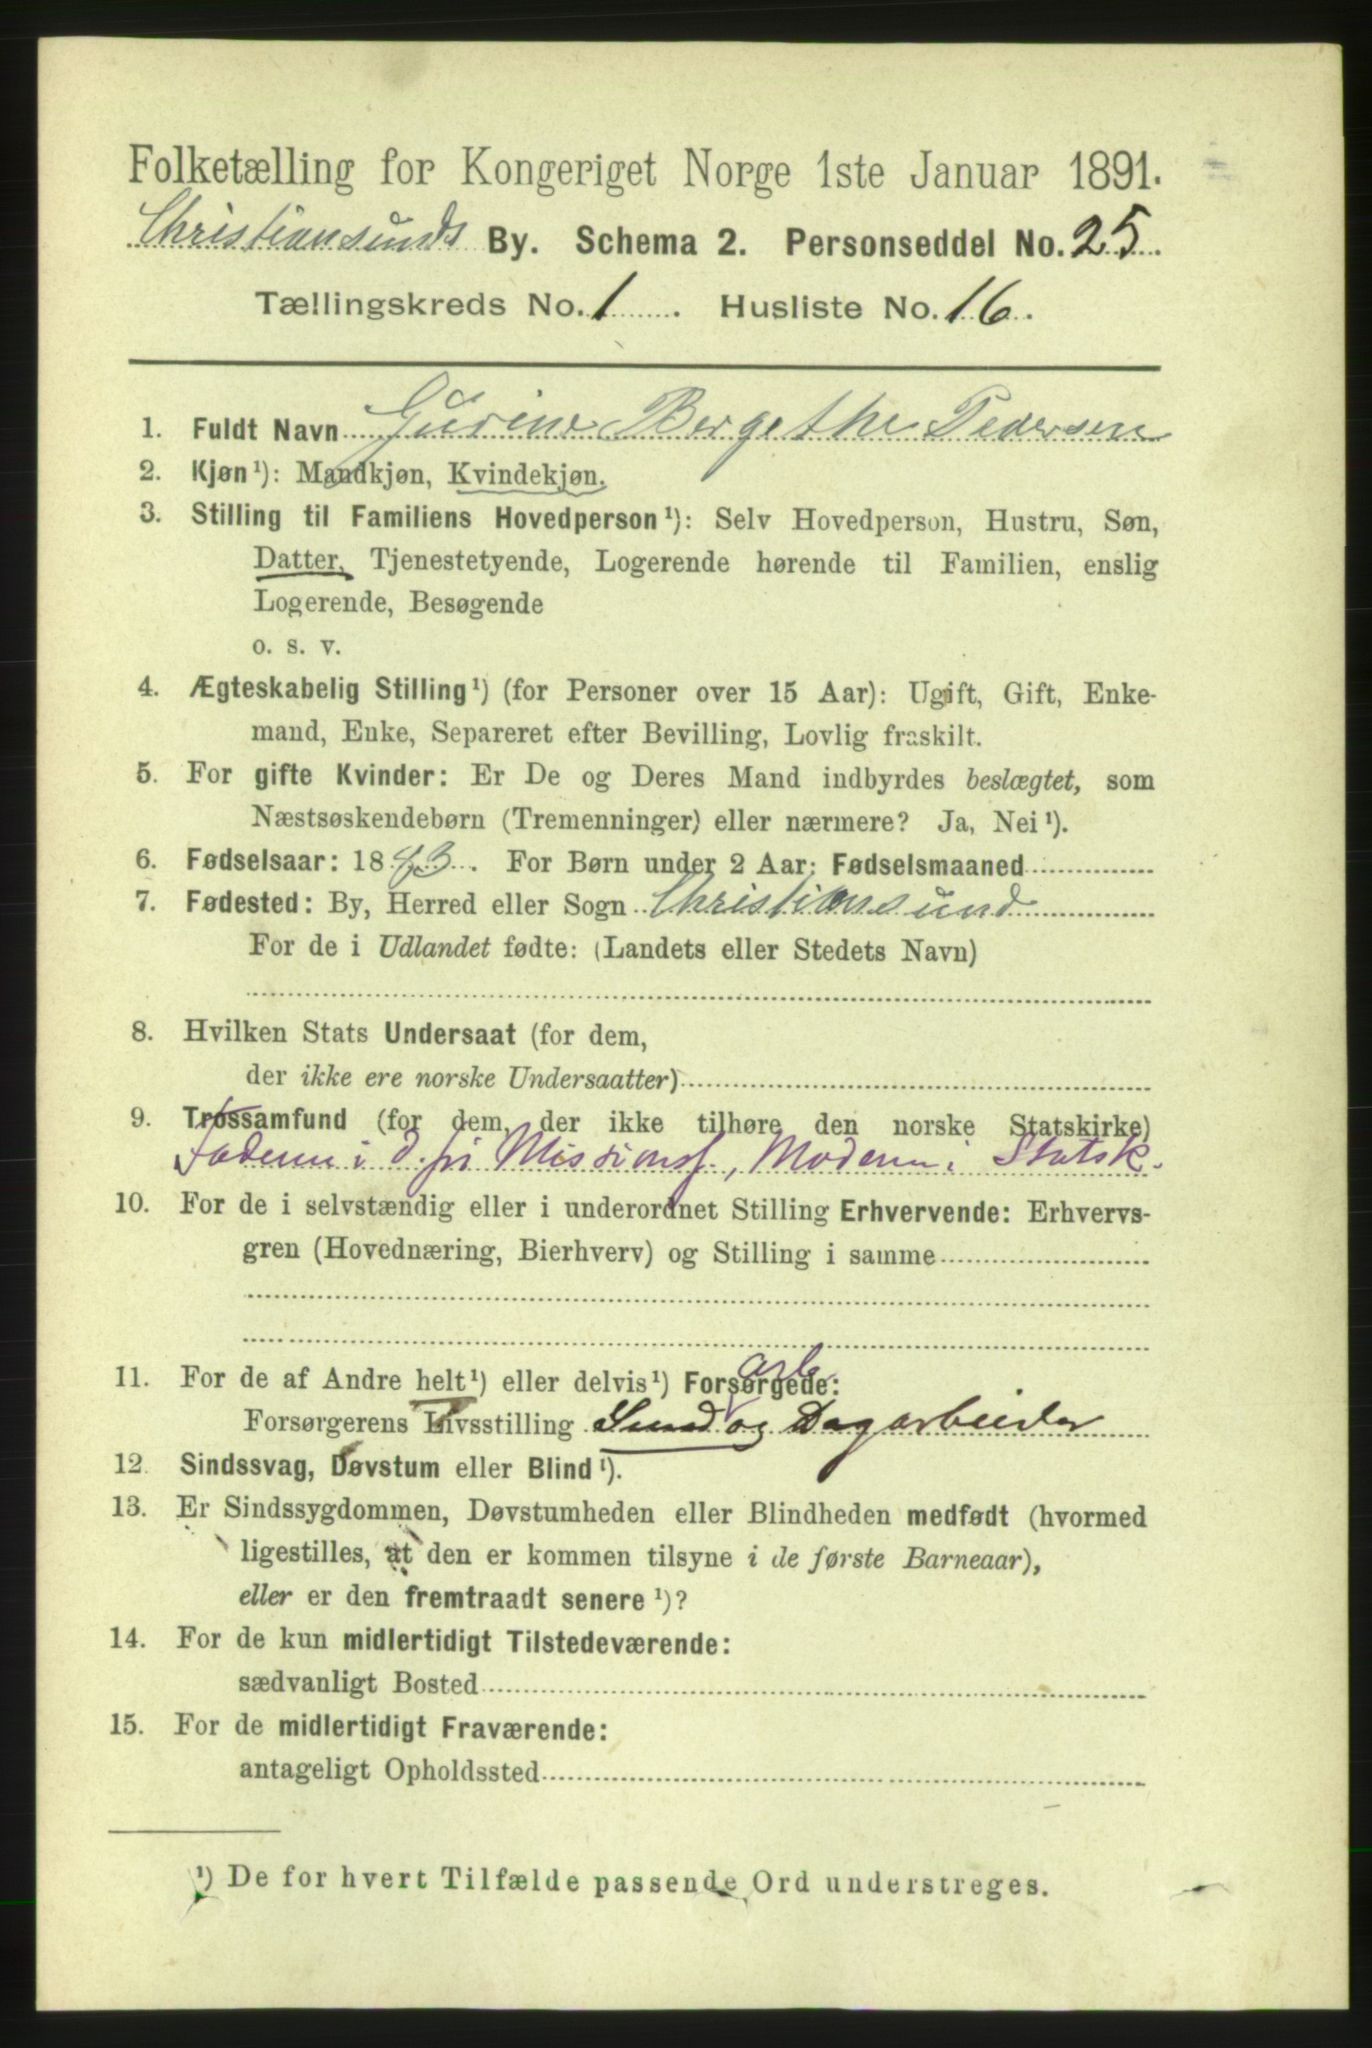 Folketælling for Kongeriget Norge 1ste Januar 1891.
Christiansunds By. Schema 2. Personseddel No. 25.
Tællingskreds No. 1. Husliste No. 16.
1. Fuldt Navn Gurine Bergethe Pedersen
2. Kjøn¹): Mandkjøn, Kvindekjøn.
3. Stilling til Familiens Hovedperson¹): Selv Hovedperson, Hustru, Søn,
Datter, Tjenestetyende, Logerende hørende til Familien, enslig
Logerende, Besøgende
o. s. v.
4. Ægteskabelig Stilling¹) (for Personer over 15 Aar): Ugift, Gift, Enke-
mand, Enke, Separeret efter Bevilling, Lovlig fraskilt.
5. For gifte Kvinder: Er De og Deres Mand indbyrdes beslægtet, som
Næstsøskendebørn (Tremenninger) eller nærmere? Ja, Nei¹).
6. Fødselsaar: 1883. For Børn under 2 Aar: Fødselsmaaned
7. Fødested: By, Herred eller Sogn Christiansund
For de i Udlandet fødte: (Landets eller Stedets Navn)
8. Hvilken Stats Undersaat (for dem,
der ikke ere norske Undersaatter)
9. Trossamfund (for dem, der ikke tilhøre den norske Statskirke)
Faderen i d. fri Missionsf., Moderen i Statsk.
10. For de i selvstændig eller i underordnet Stilling Erhvervende: Erhvervs-
gren (Hovednæring, Bierhverv) og Stilling i samme
11. For de af Andre helt¹) eller delvis¹) Forsørgede:
arb.
Forsørgerens Livsstilling og Dagarbeider
12. Sindssvag, Døvstum eller Blind¹).
13. Er Sindssygdommen, Døvstumheden eller Blindheden medfødt (hvormed
ligestilles, at den er kommen tilsyne i de første Barneaar),
eller er den fremtraadt senere¹)?
14. For de kun midlertidigt Tilstedeværende:
sædvanligt Bosted
15. For de midlertidigt Fraværende:
antageligt Opholdssted
¹) De for hvert Tilfælde passende Ord understreges.